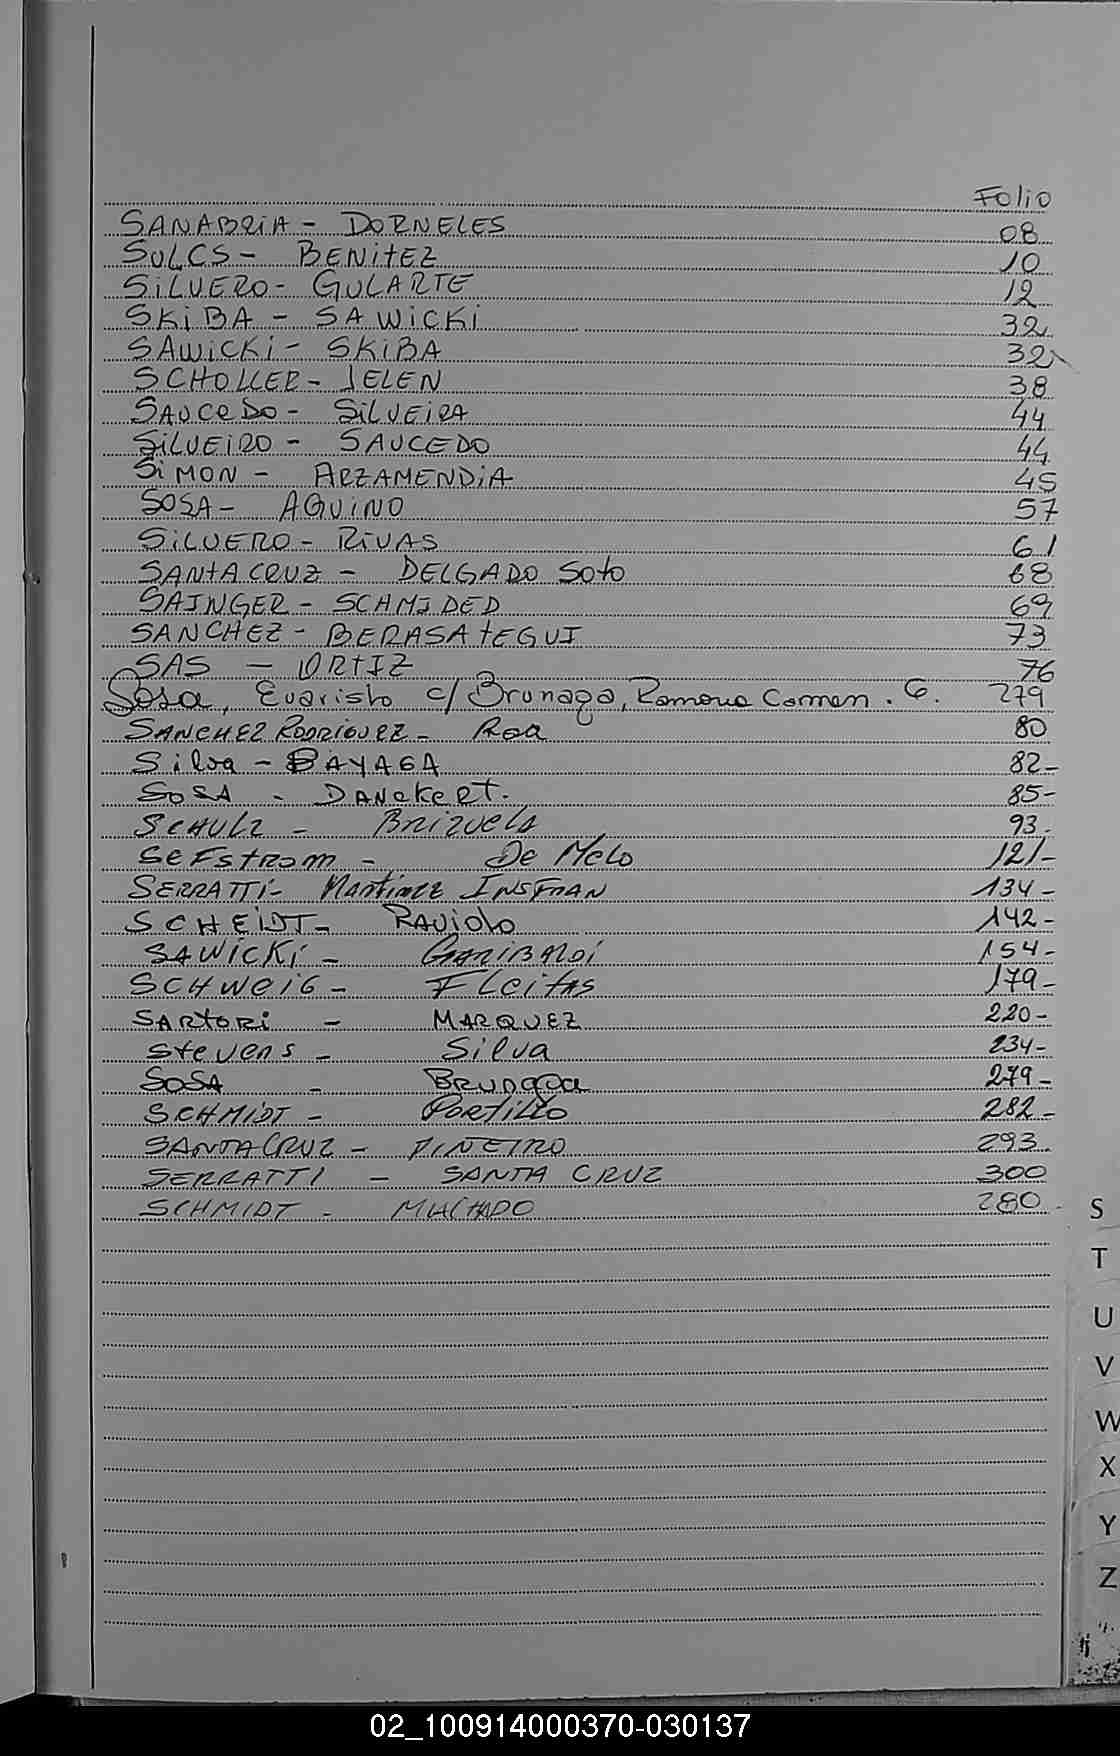 Folio
SANABRIA - DORNELES 08
SULCS - BENITEZ 10
SILVERO - GULARTE 12
SKIBA - SAWICKI 32
SAWICKI - SKIBA 32
SCHOLLER - JELEN 38
SAUCEDO - SILVEIRA 44
SILVEIRO - SAUCEDO 44
SIMON - ARZAMENDIA 45
SOSA - AQUINO 57
SILVERO - RIVAS 61
SANTACRUZ - DELGADO SOTO 68
SAINGER - SCHMIDED 69
SANCHEZ - BERASATEGUI 73
SAS - ORTIZ 76
Sosa, Evaristo c/ Brunaga, Ramona Carmen. G. 279
SANCHEZ RODRIGUEZ - Roa 80
Silva - BAYAGA 82-
SOSA - DANCKERT. 85-
SCHULZ - Brizuela 93.
SEFSTROM - De Melo 121-
SERRATTI - Martinez INSFRAN 134-
SCHEIDT - RAVIOLO 142-
SAWICKI - GARIBALDI 154-
SCHWEIG - FLEITAS 179-
SARTORI - MARQUEZ 220-
Stevens - Silva 234-
SOSA - BRUNAGA 279-
SCHMIDT - PORTILLO 282-
SANTACRUZ - PINEIRO 293
SERRATTI - SANTA CRUZ 300
SCHMIDT - MACHADO 280
S
T
U
V
W
X
Y
Z
02_100914000370-030137